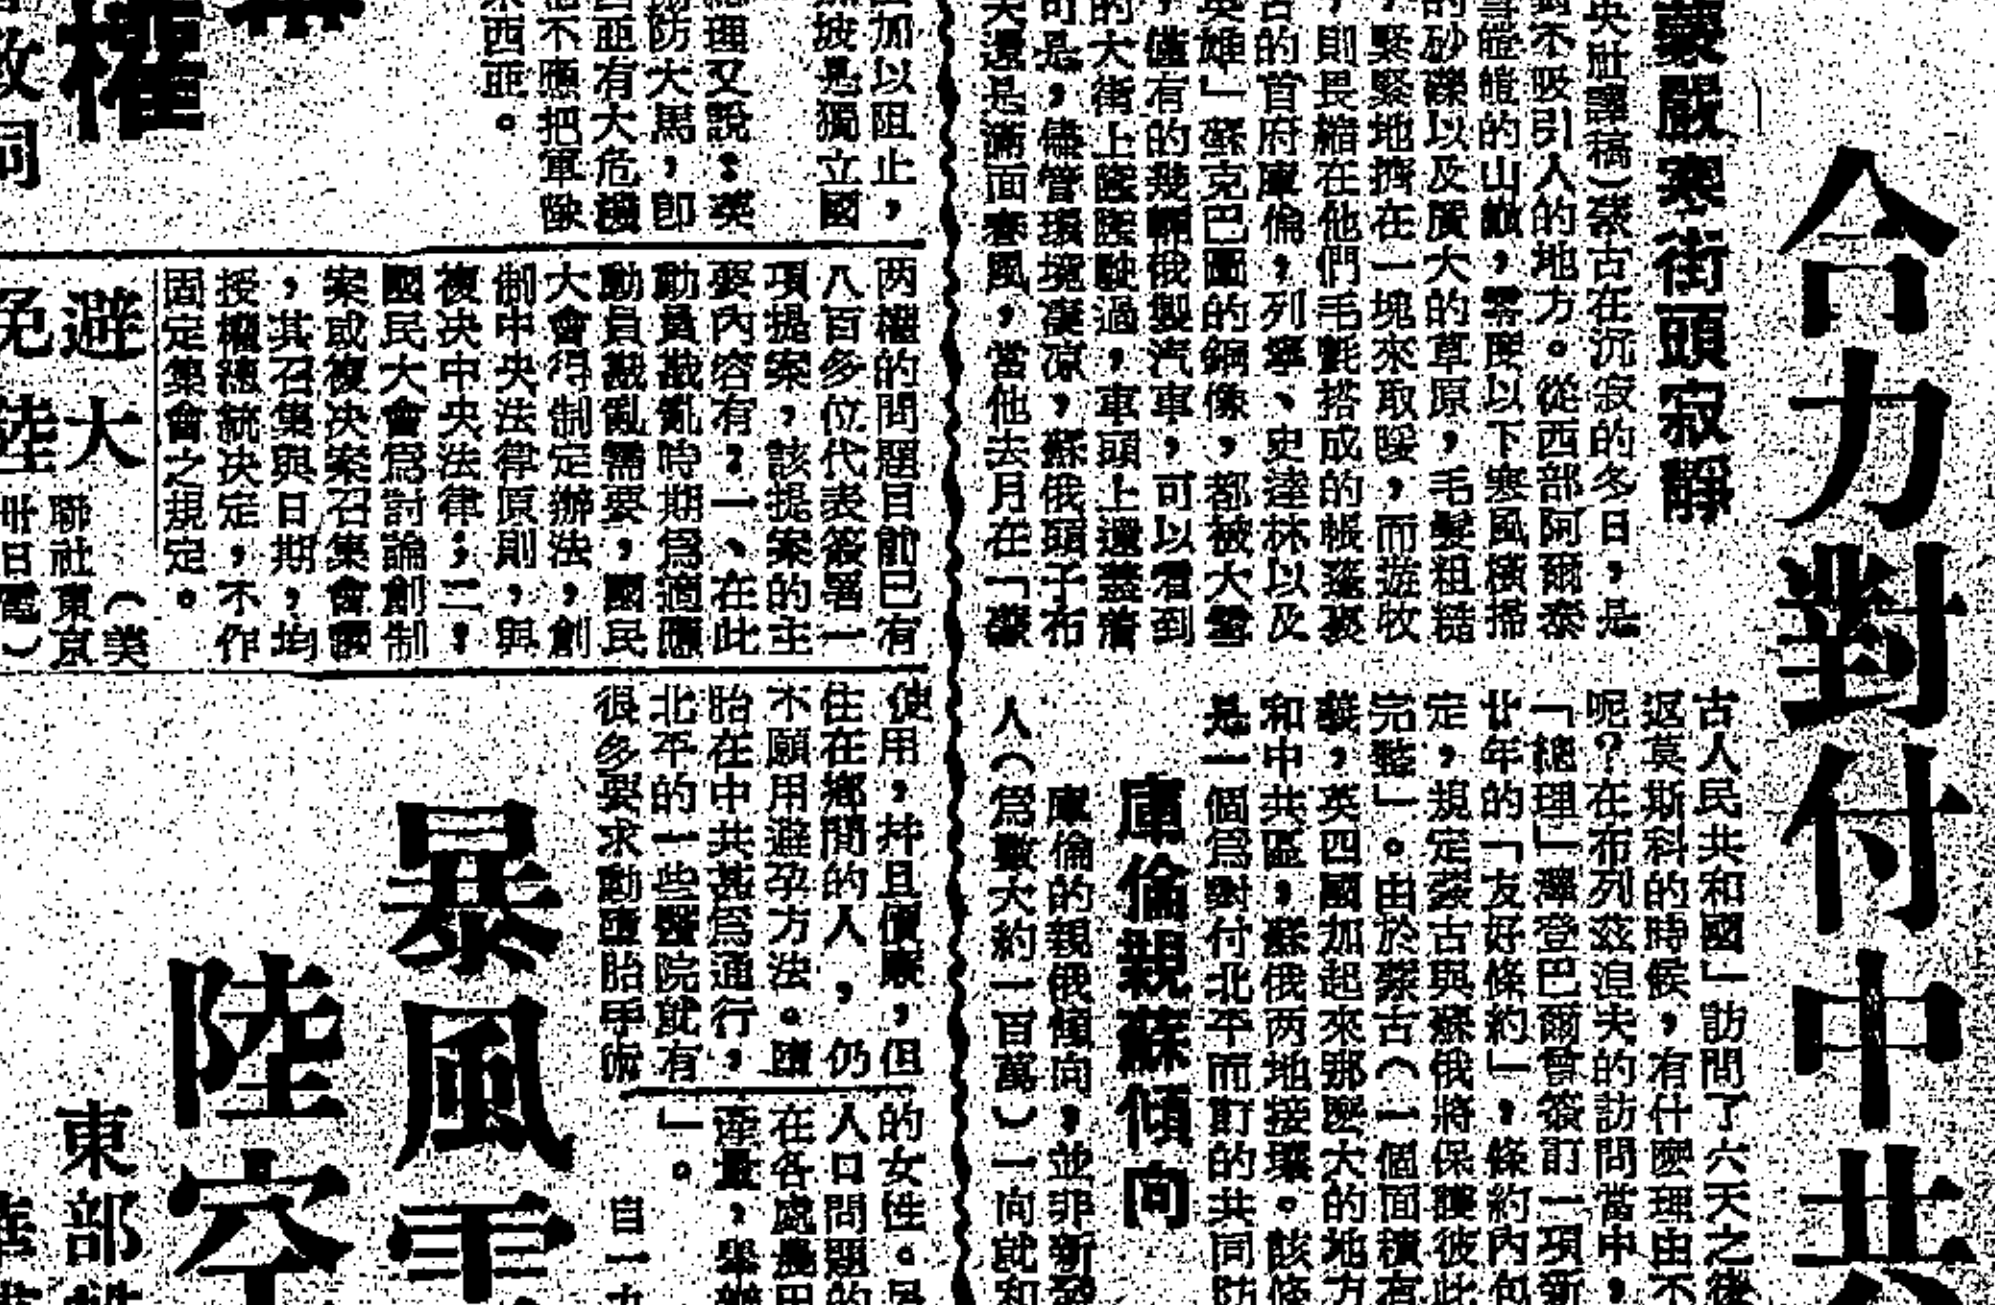 合力對付中共
蒙嚴寒街頭寂靜
央社譯稿）蒙古在沉寂的冬日，是
對不吸引人的地方。從西部阿爾泰
雪皚皚的山巔，零度以下寒風橫掃
的砂礫以及廣大的草原，毛髮粗糙
，緊緊地擠在一塊來取暖，而遊牧
，則畏縮在他們毛氈搭成的帳蓬裏
古的首府庫倫，列寧、史達林以及
英雄」蘇克巴圖的銅像，都被大雪
，僅有的幾輛俄製汽車，可以看到
的大街上隆隆駛過，車頭上還蓋着
可是，儘管環境凄凉，蘇俄頭子布
夫還是滿面春風，當他去月在「蒙
古人民共和國」訪問了六天之後
返莫斯科的時候，有什麼理由不
呢？在布列茲湼夫的訪問當中，
「總理」澤登巴爾曾簽訂一項新
廿年的「友好條約」，條約內包
定，規定蒙古與蘇俄將保護彼此
完整」。由於蒙古（一個面積有
義，英四國加起來那麼大的地方
和中共區，蘇俄两地接壤。該條
是一個爲對付北平而訂的共同防
庫倫親蘇傾向
庫倫的親俄傾向，並非新
人（爲數大約一百萬）一向就和
加以阻止，
坡是獨立國
總理又說：英
防大馬，卽
西亞有大危機
不應把軍隊
東西亞。
权
權
致詞
两權的問題目前已有
八百多位代表簽署一
項提案，該提案的主
要內容有：一、在此
動員戡亂時期爲適應
動員戡亂需要，國民
大會得制定辦法，創
制中央法律原則，與
複决中央法律；二，
國民大會爲討論創制
案或複决案召集會議
，其召集與日期，均
授權總統决定，不作
固定集會之規定。
避大
免陸
（美
聯社東京
卅日電）
使用，并且價廉，但
住在鄉間的人，仍
不願用避孕方法。墮
胎在中共甚爲通行，
北平的一些醫院就有
很多要求動墮胎手術
的女性。
人口問題的
在各處農田
產量，舉辦
」。
自一九
暴風雪
陸空
東部